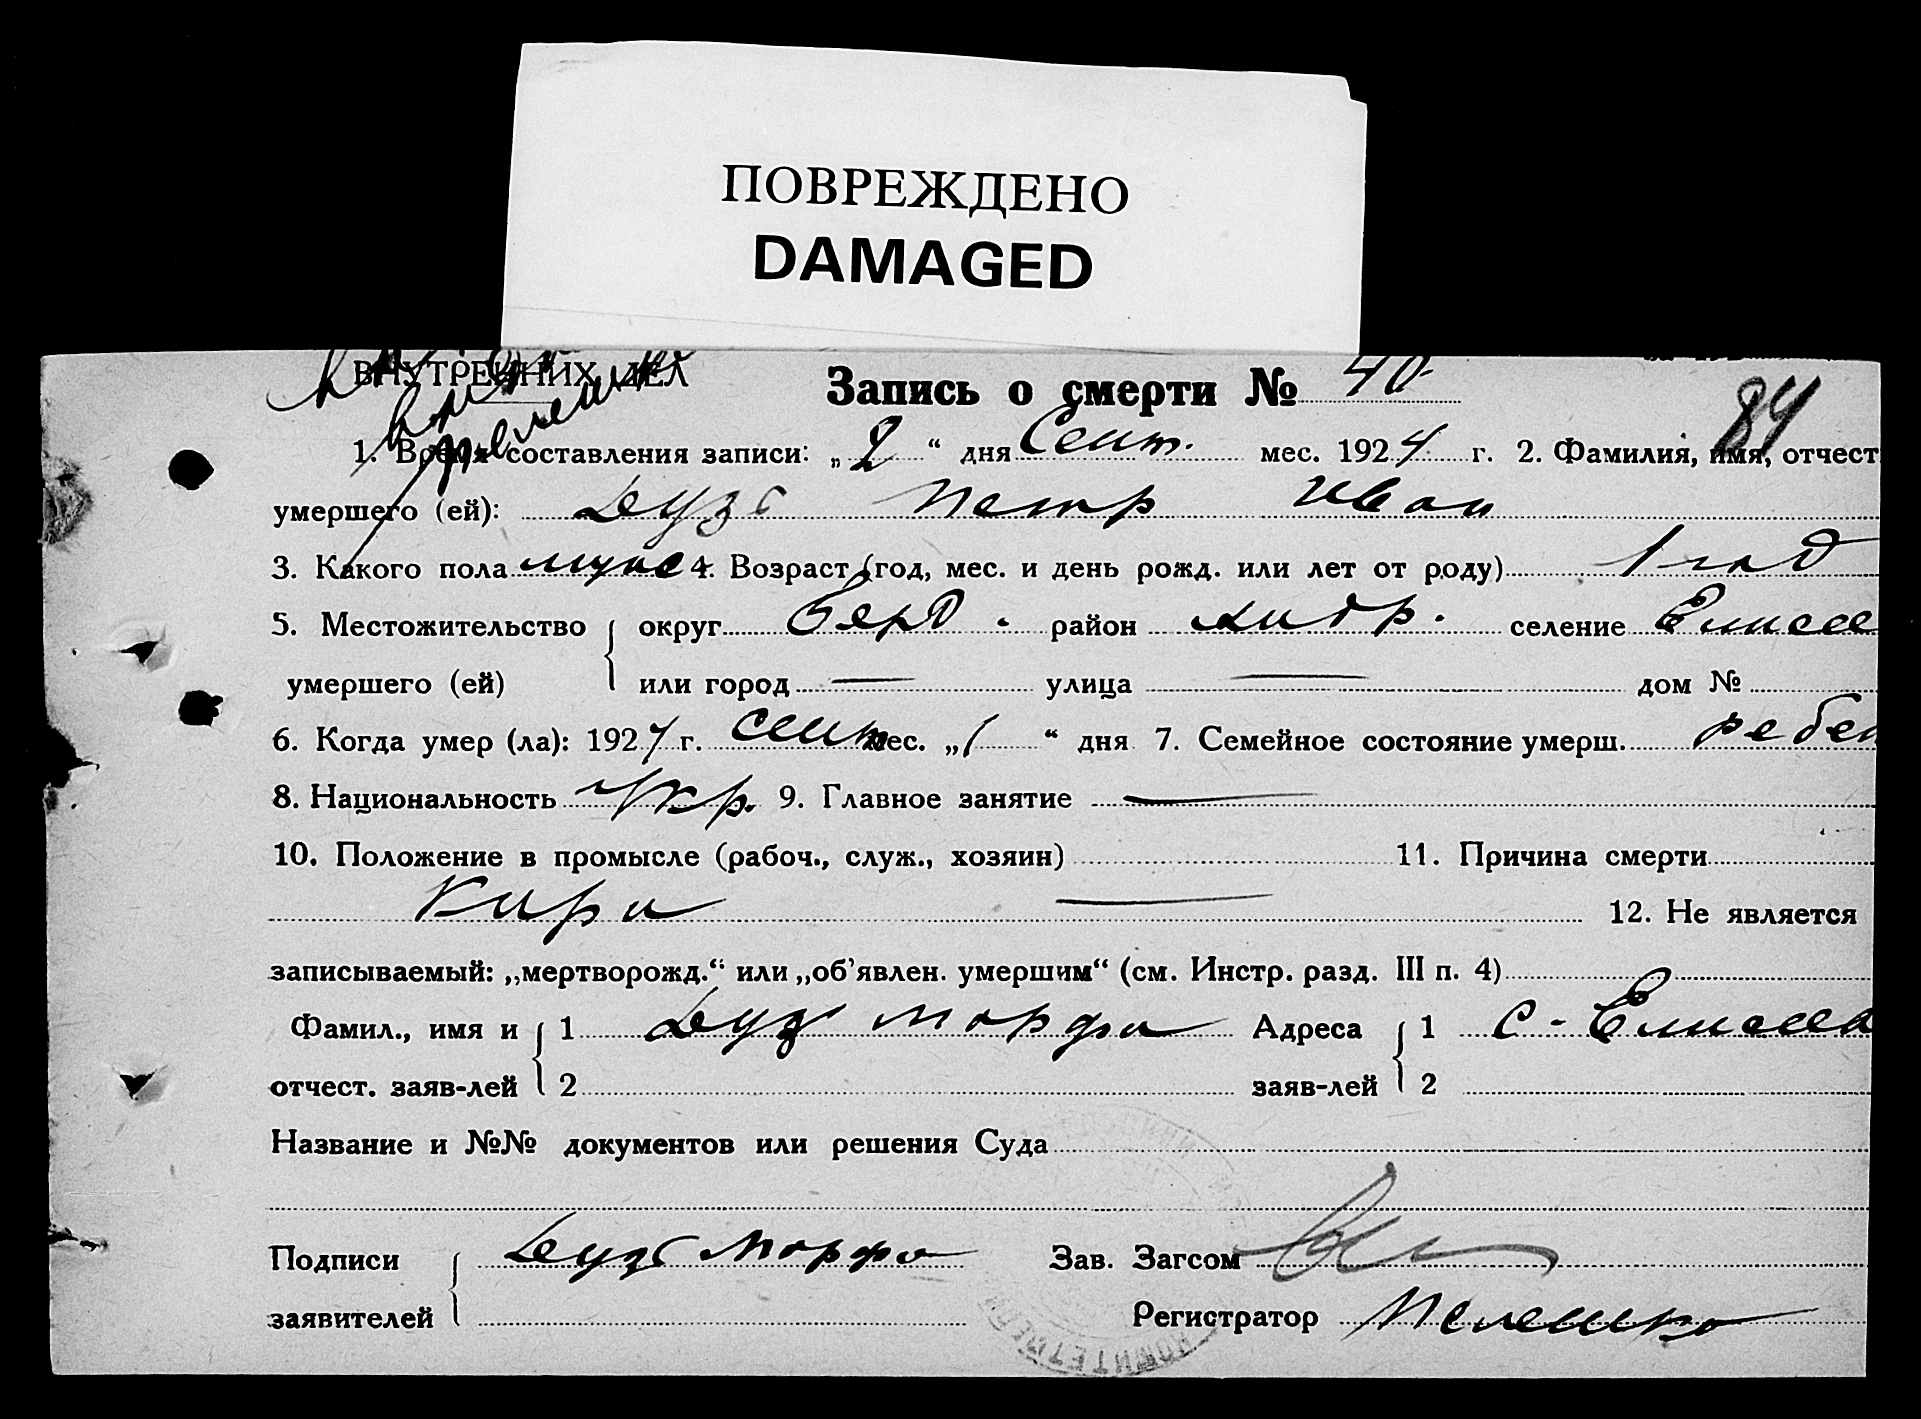 ПОВРЕЖДЕНО
DAMAGED
ВНУТРЕННИХ ДЕЛ
Запись о смерти № 40
84
1. Время составления записи: „2“ дня Сент. мес. 1924 г. 2. Фамилия, имя, отчест
умершего (ей): Дузь Петр Иван
3. Какого пола муж 4. Возраст (год, мес. и день рожд. или лет от роду) 1 год
5. Местожительство округ Берд. район Андр. селение Елисее
умершего (ей) или город — улица — дом №
6. Когда умер (ла): 1924 г. сент мес. „1“ дня 7. Семейное состояние умерш. ребен
8. Национальность Укр. 9. Главное занятие —
10. Положение в промысле (рабоч., служ., хозяин) 11. Причина смерти
— 12. Не является
записываемый: „мертворожд.“ или „об’явлен. умершим“ (см. Инстр. разд. III п. 4)
Фамил., имя и 1 Дузь Марфа Адреса 1 С-Елисеев
отчест. заяв-лей 2 заяв-лей 2
Название и №№ документов или решения Суда
Подписи Дузь Марфа Зав. Загсом
заявителей Регистратор Пелешко